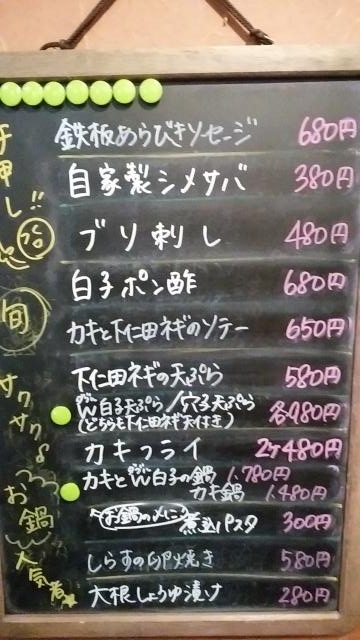 鉄板あらびきソーセージ 680円
自家製シメサバ 380円
ブリ刺し 480円
白子ポン酢 680円
旬
カキと下仁田ネギのソテー 650円
下仁田ネギの天ぷら 580円
W白子天ぷら/穴子天ぷら 各980円
(どちらも下仁田ネギ天付き)
サクサク♪
カキフライ 2ケ480円
カキとW白子の鍋 1,780円
カキ鍋 1,480円
お鍋
お鍋の〆に 煮込パスタ 300円
しらすの卵焼き 580円
人気者
大根しょうゆ漬け 280円